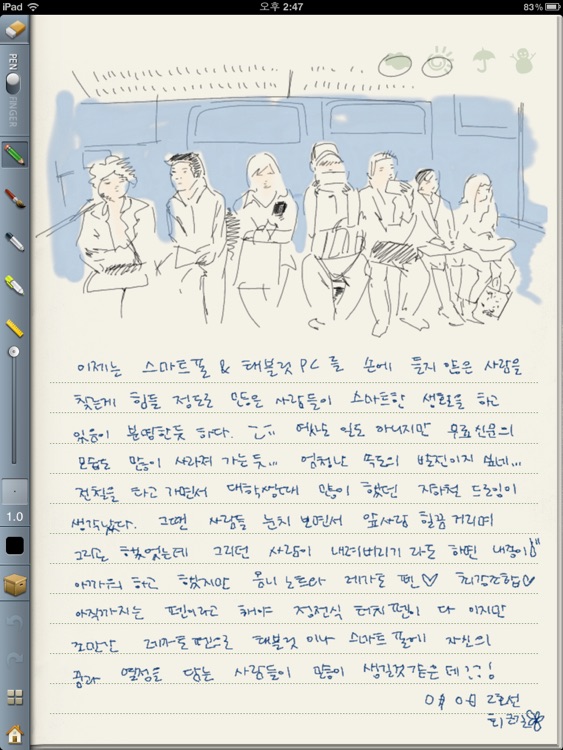 iPad 오후 2:47 83%
PEN
FINGER
1.0
이제는 스마트폰 & 태블릿 PC를 손에 들지 않은 사람을
찾는게 힘들 정도로 많은 사람들이 스마트한 생활을 하고
있음이 분명한듯 하다. 어찌보면 일도 아니지만 무료신문의
모습도 많이 사라져 가는듯... 엄청난 속도의 발전이지 싶네...
전철을 타고 가면서 대학생때 많이 했던 지하철 드로잉이
생각났다. 그땐 사람들 눈치 보면서 앞사람 힐끔 거리며
그리고 했었는데 그리던 사람이 내려버리기 라도 하면
하고 했지만 옴니노트와 레가토 펜♡ 최강조합♡
아직까지는 펜이라고 해야 정전식 터치펜이 다 이지만
조만간 레가토펜으로 태블릿 이나 스마트 폰에 자신의
꿈과 열정을 담는 사람들이 많이 생길것같은데??!
2호선